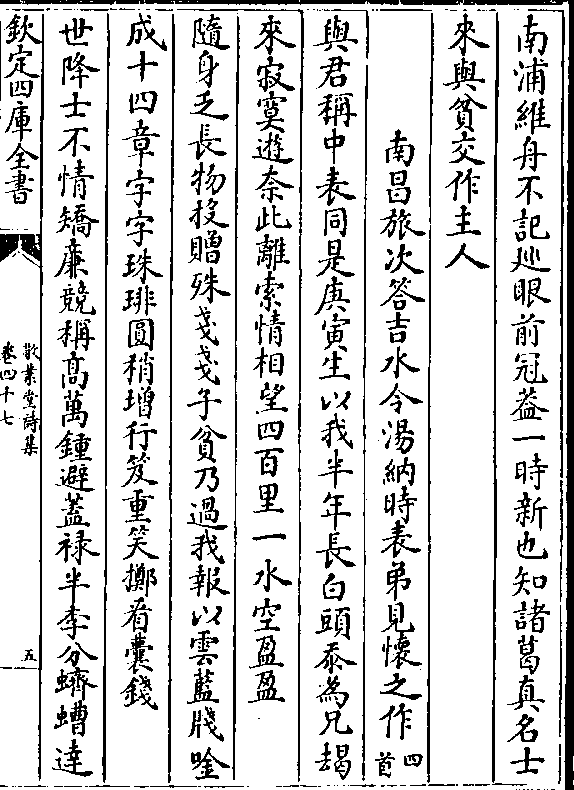 南浦維舟不記巡眼前冠葢一時新也知諸葛真名士
來與貧交作主人
南昌旅次答吉水令湯納時表弟見懐之作四首
與君稱中表同是庚寅生以我半年長白頭忝為兄朅
來寂寞遊奈此離索情相望四百里一水空盈盈
隨身乏長物投贈殊戔戔子貧乃過我報以雲藍牋唫
成十四章字字珠琲圓稍增行笈重笑擲看囊錢
世降士不情矯亷競稱髙萬鍾避蓋禄半李分蠐螬達
欽定四庫全書
敬業堂詩集
卷四十七
五